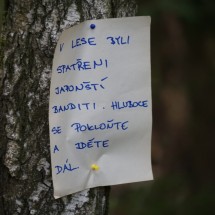 V LESE BYLI
SPATŘENI
JAPONŠTÍ
BANDITI. HLUBOCE
SE POKLOŇTE
A JDĚTE
DÁL